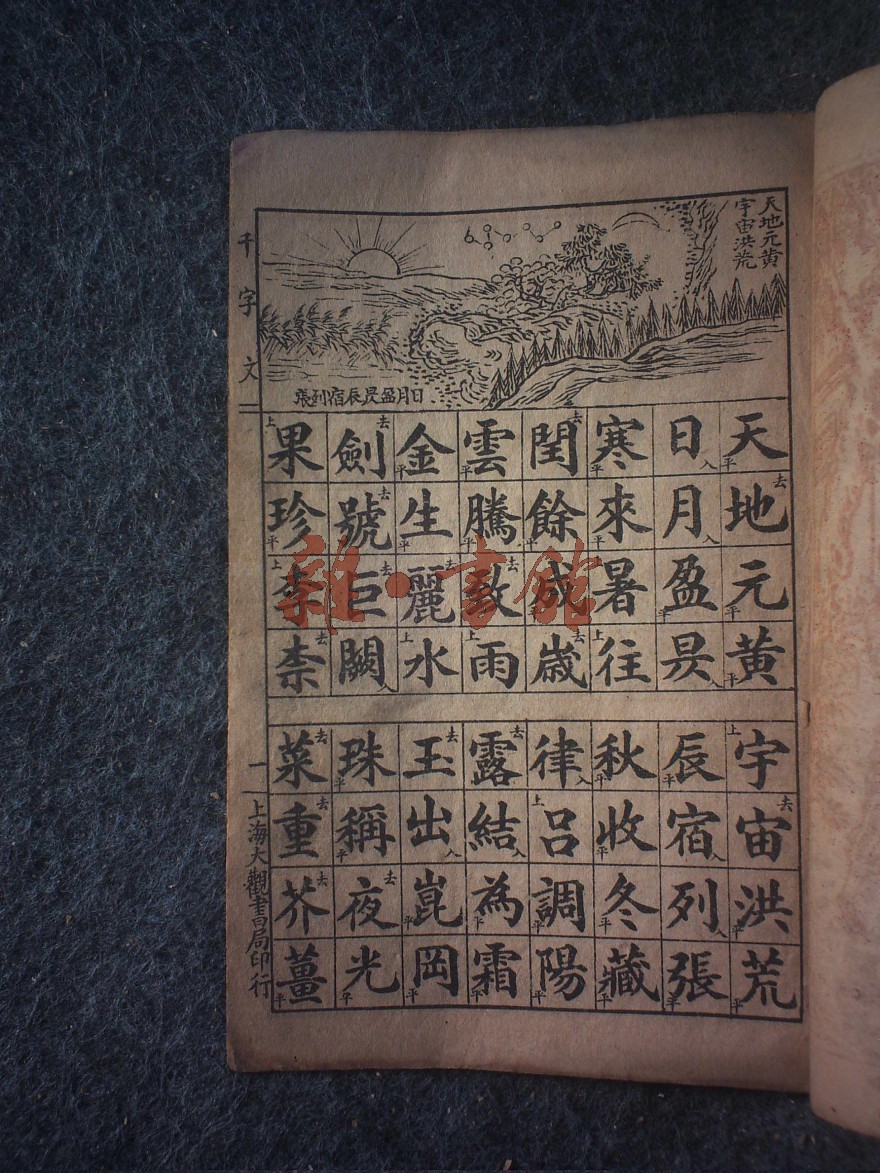 天地元黃
宇宙洪荒
日月盈昃辰宿列張
天地元黃宇宙洪荒
日月盈昃辰宿列張
寒來暑往秋收冬藏
閏餘成歲律呂調陽
雲騰致雨露結為霜
金生麗水玉出崑岡
劍號巨闕珠稱夜光
果珍李柰菜重芥薑
千字文
一
上海大觀書局印行
雜·書館